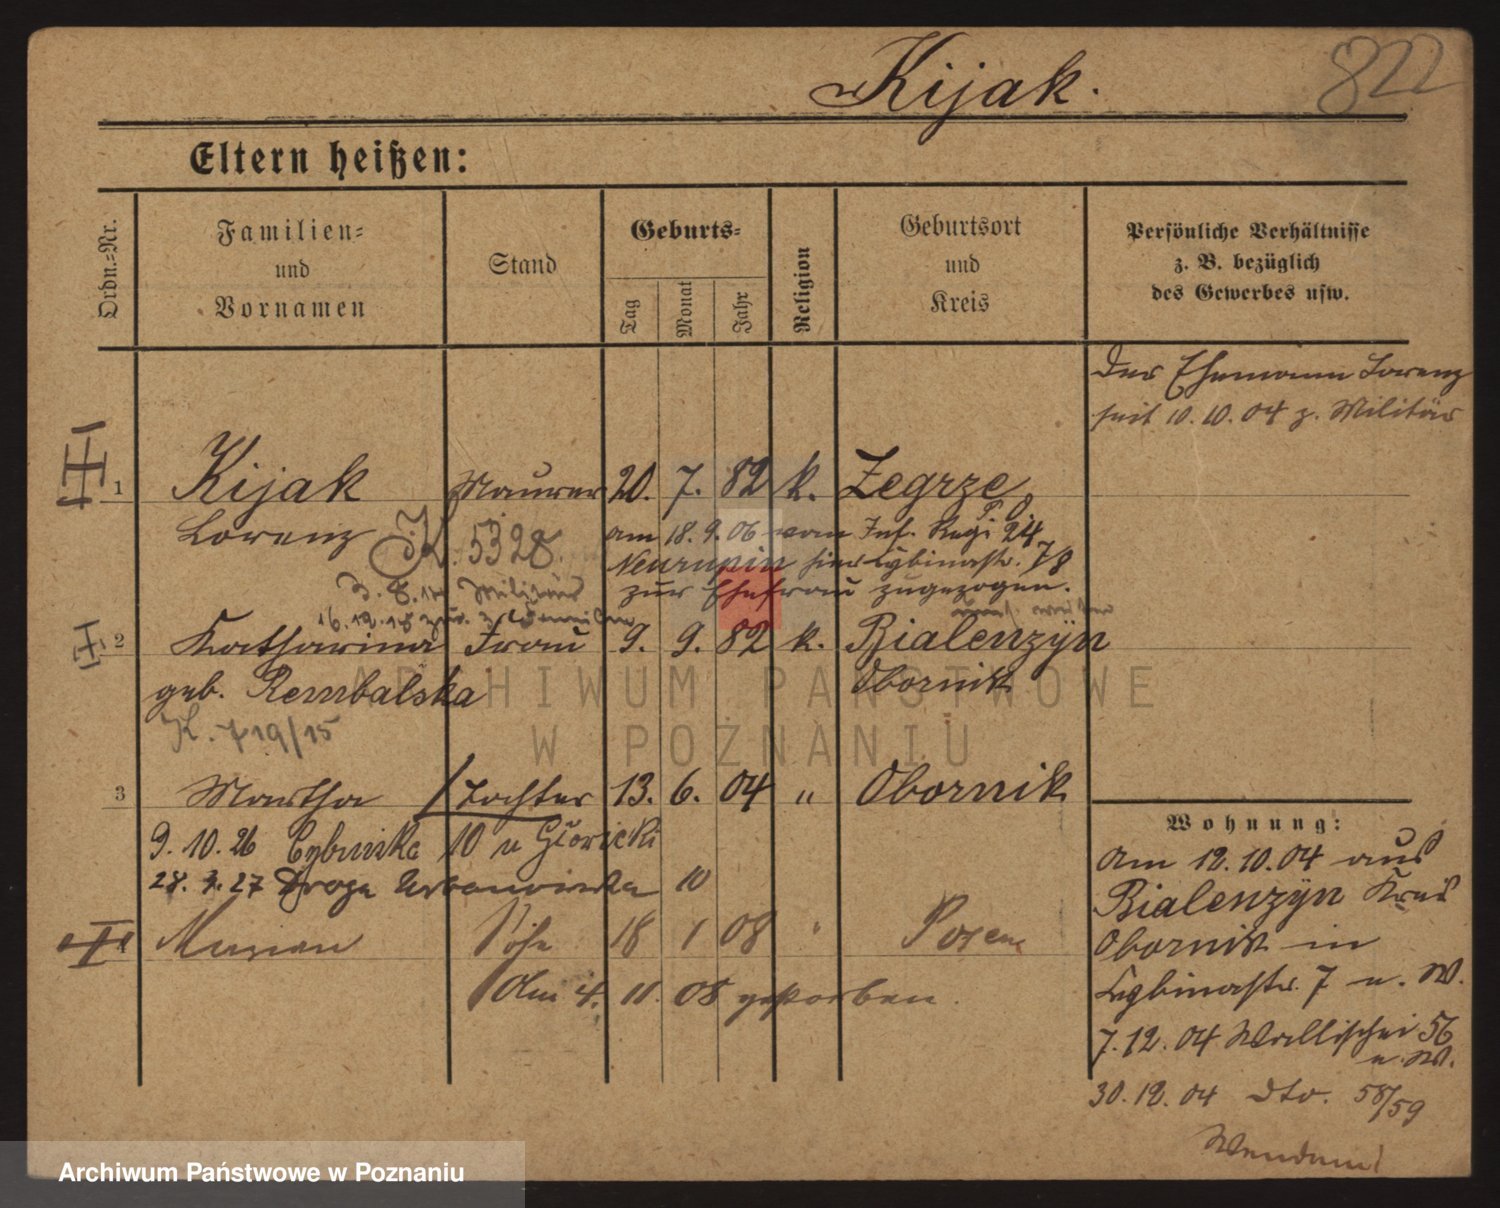 Kijak.
822
Eltern heißen:
Ordn.-Nr.
Familien- und Vornamen
Stand
Geburts-
Tag
Monat
Jahr
Religion
Geburtsort und Kreis
Persönliche Verhältnisse z. B. bezüglich des Gewerbes usw.
Der Ehemann Lorenz
seit 10.10.04 z. Militär
1 Kijak Maurer 20. 7. 82 k. Zegrze
Lorenz K. 5328.
am 18.9.06 vom Inf. Regi 24
Neurupin hier Cybinastr. 78
zur Ehefrau zugezogen.
3.8.14 Militär
16.12.18
2 Katharina Frau 9. 9. 82 k. Bialenzÿn
geb. Rembalska Obornik
K. 719/15
3 Martha Tochter 13. 6. 04 " Obornik
9.10.26 Cybinska 10 u Głoricki
28.3.27 Droga Urbanowska 10
4 Maryan Sohn 18 1 08 " Posen
Am 4. 11. 08 gestorben.
Wohnung:
Am 12.10.04 aus
Bialenzÿn Kreis
Obornik in
Cybinastr. 7 u. W.
7.12.04 Wallischei 56
u. W.
30.12.04 dto. 58/59
Wenden!
ARCHIWUM PAŃSTWOWE
W POZNANIU
Archiwum Państwowe w Poznaniu